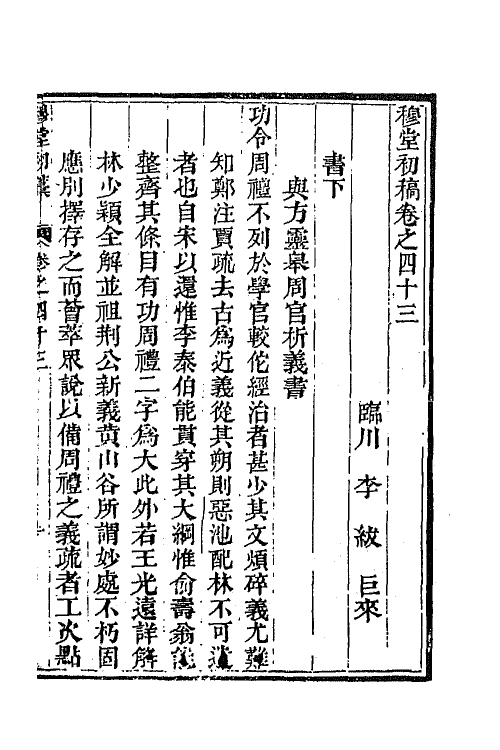 穆堂初稿卷之四十三
臨川 李紱 巨來
書下
與方靈皋周官析義書
功令周禮不列於學官較佗經治者甚少其文煩碎義尤難
知鄭注賈疏去古爲近義從其朔則惡池配林不可遺
者也自宋以還惟李泰伯能貫穿其大綱惟俞壽翁能
整齊其條目有功周禮二字爲大此外若王光遠詳解
林少穎全解並祖荆公新義黄山谷所謂妙處不朽固
應別擇存之而薈萃眾說以備周禮之義疏者工次點
穆堂初藁 卷之四十三